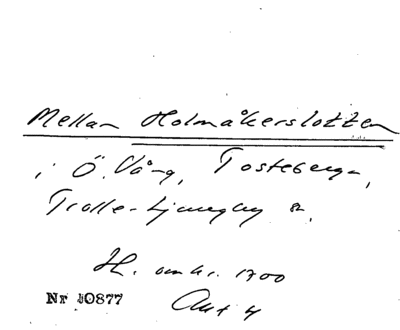 Mellan Holmåkerslotten
i Ö. Vång, Tosteberga,
Trolle-Ljungby sn.
H. omkr. 1700
Nr 10877 Akt 4